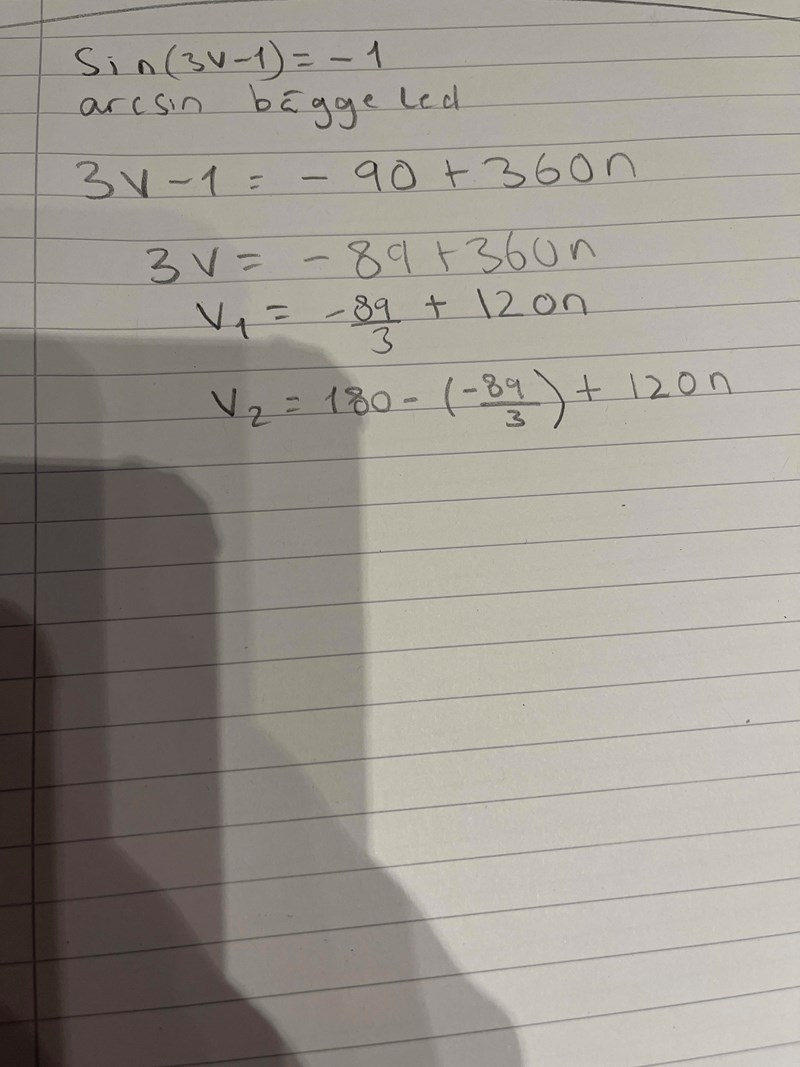 Sin(3v-1) = -1
arcsin bägge led
3v-1 = -90 + 360n
3v = -89 + 360n
v₁ = -89/3 + 120n
v₂ = 180 - (-89/3) + 120n